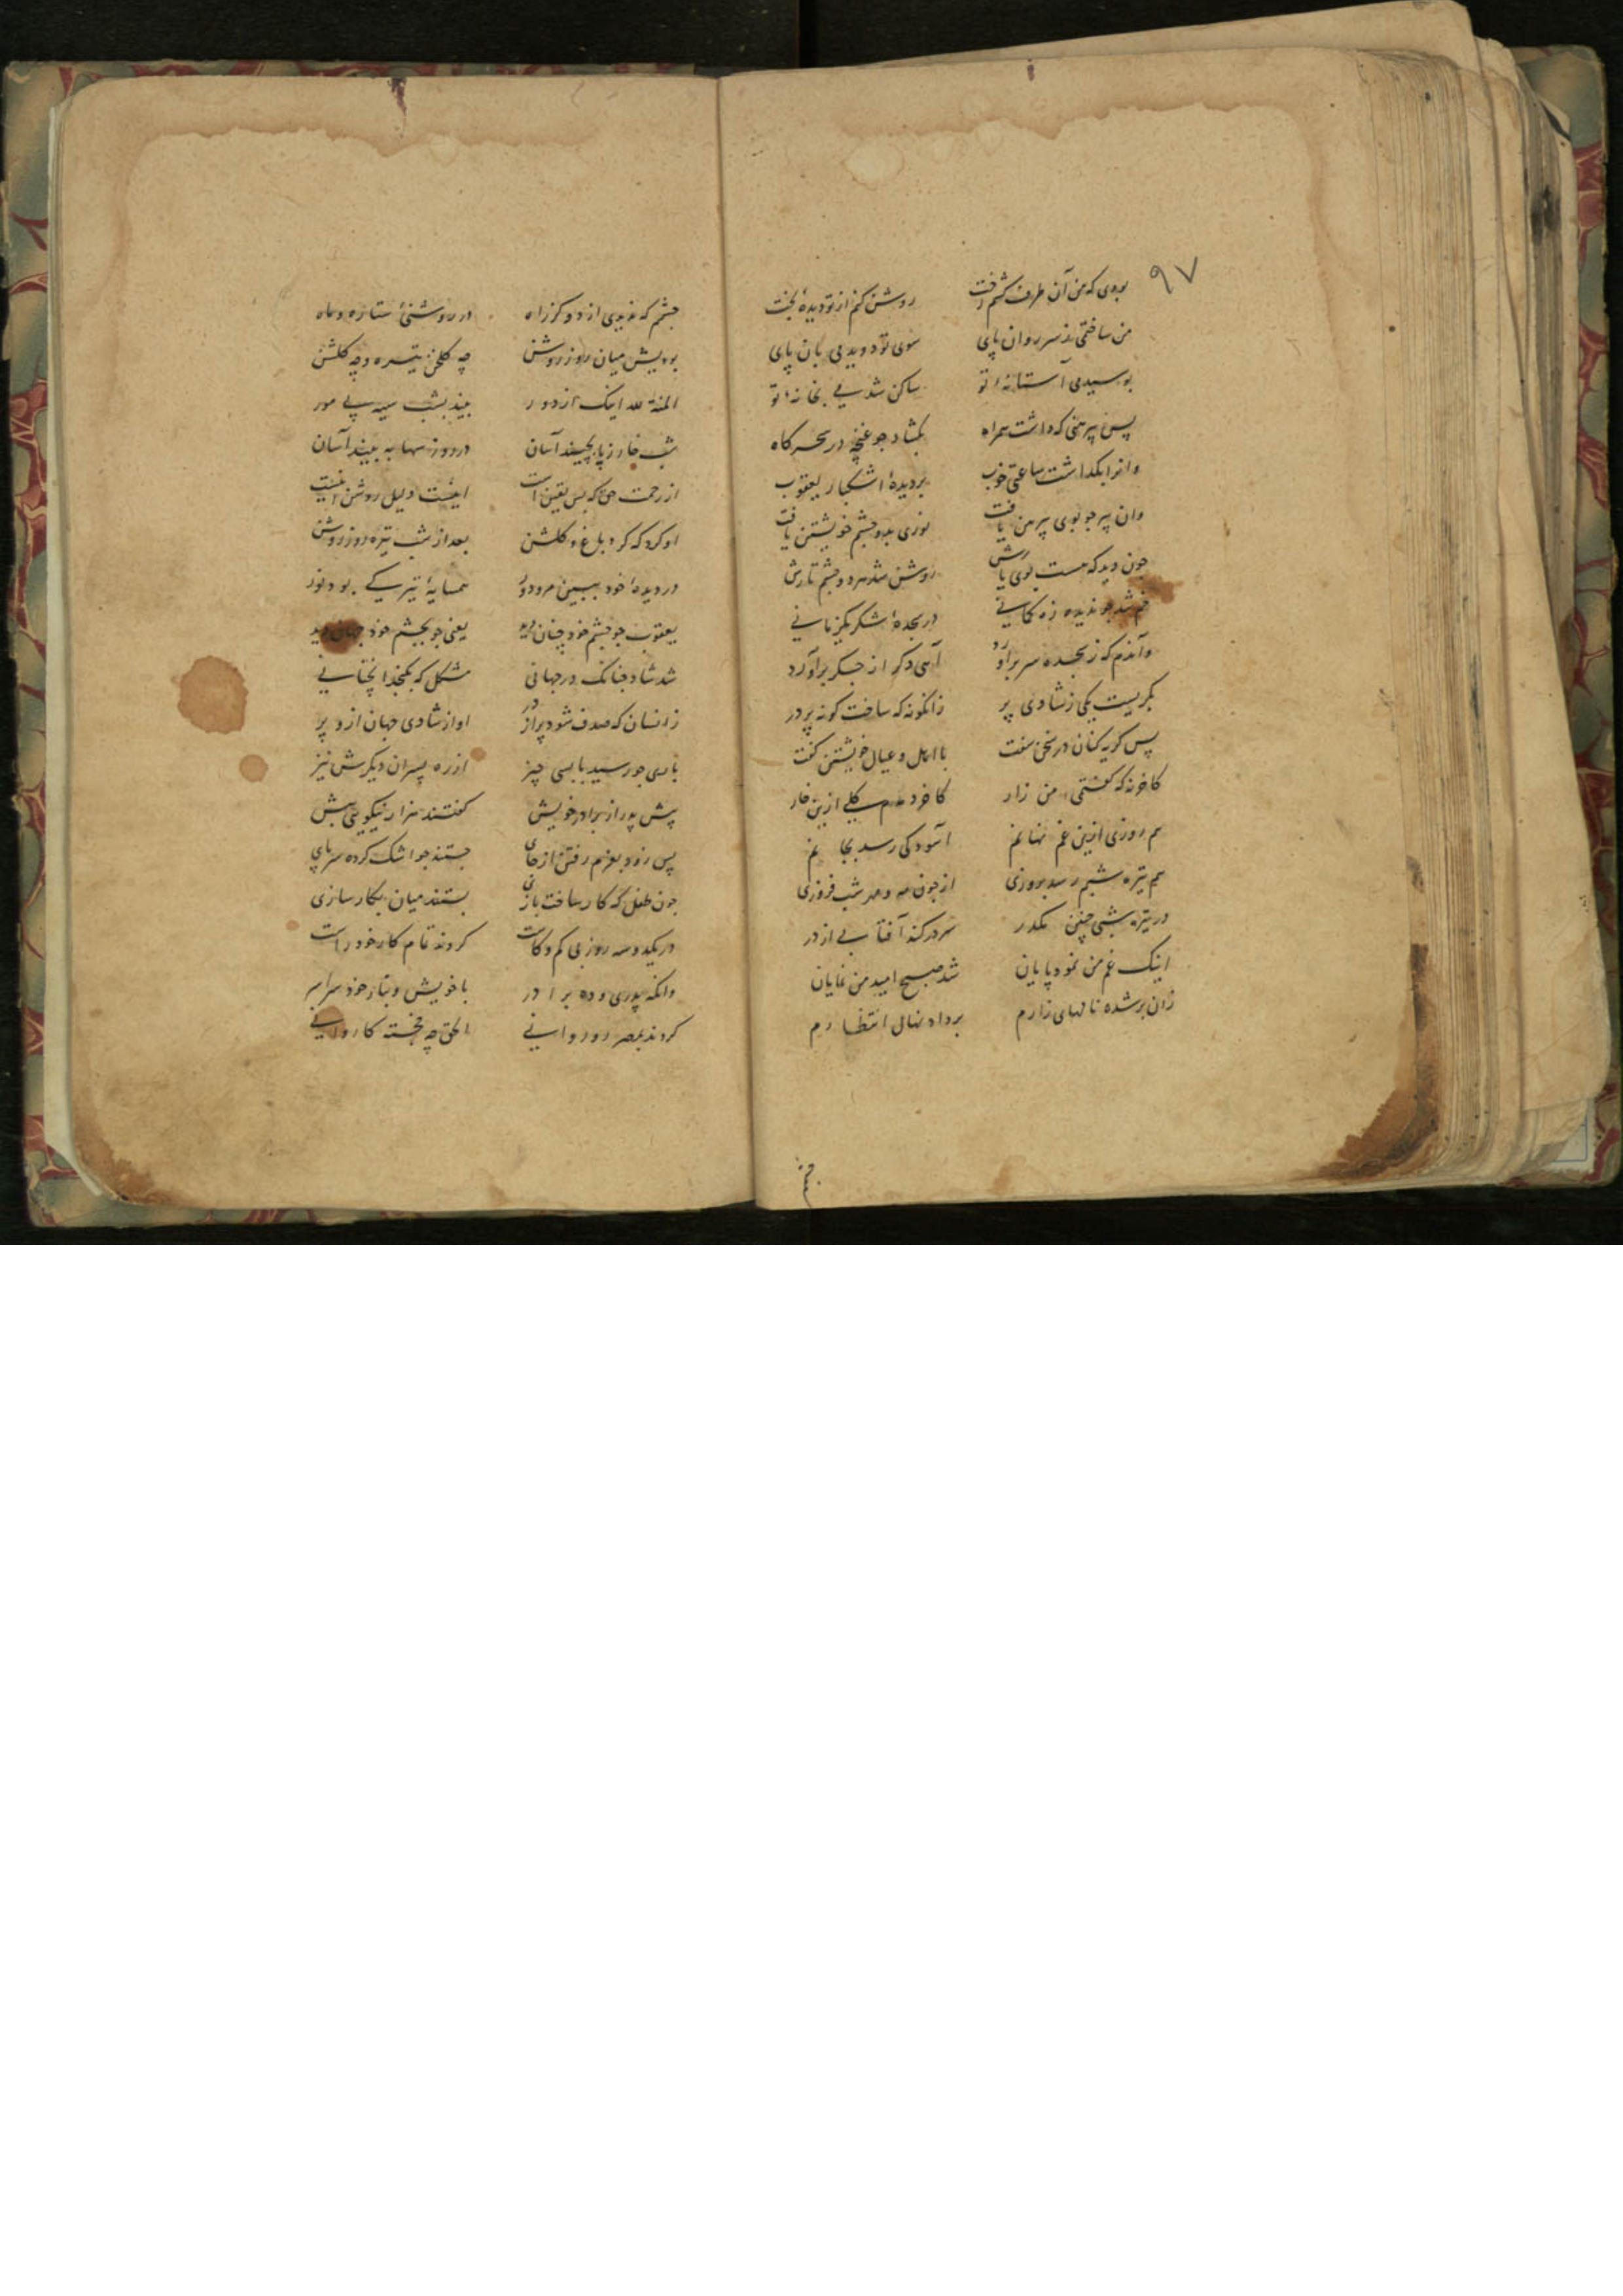 ۹۷
بودی که من آن طرف کشم رخت روشن کنم از تو دیدهٔ بخت
من ساختمی ز سر روان پای سوی تو دویدمی بان پای
بوسیدمی آستانهٔ تو ساکن شدمی بخانهٔ تو
پس پیرهنی که داشت همراه بکشاد جو غنچه در سحرکاه
وانرا بکداشت ساعتی خوب بر دیدهٔ اشکبار یعقوب
وان پیر جو بوی پیرهن یافت نوری بدو جشم خویشتن یافت
جون دید که هست بوی یارش روشن شد هر دو جشم تارش
خم شد جو ندیده زه کمانی در سجدهٔ شکر یکزمانی
وآندم که ز سجده سر برآورد آهی دکر از جکر برآورد
بکریست یکی ز شادی پر زانکونه که ساخت کونه پر در
پس کریه کنان در سخن سفت با اهل و عیال خویشتن کفت
کاخر نه که کفتمی من زار کاخر دمدم کلی ازین خار
هم روزی ازین غم نهانم آسودکی رسد بجانم
هم تیره شبم رسد بروزی از جون مه و مهر شب فروزی
در تیره شبی چنین مکدر سر در کند آفتابی از در
اینک غم من نمود پایان شد صبح امید من نمایان
زان بر شده نالهای زارم بر داد نهال انتظارم
جشم
جشم که ندیدی از دو کز راه در روشنی ستاره و ماه
بودیش میان روز روشن چه کلخن تیره و چه کلشن
المنة لله اینک از دور بیند بشب سیه پی مور
شب خار ز پا بچیند آسان در روز سها به بیند آسان
از رحمت حق که بس یقین است اینست دلیل روشن اینست
او کرد که کرد باغ و کلشن بعد از شب تیره روز روشن
در دیدهٔ خود ببین مر و دور همسایهٔ تیرکی بود نور
یعقوب جو جشم خود چنان دید یعنی جو بجشم خود جهان دید
شد شاد جنانک در جهانی مشکل که بکنجد
زانسان که صدف شود پر از در او از شادی جهان ازو پر
باری جو رسید با بسی چیز از ره پسران دیکرش نیز
پیش پدر از برادر خویش کفتند هزار نیکویی بیش
پس زود بعزم رفتن از جای جستند جو اشک کرده سر پای
جون طفل که کار ساخت بازی بستند میان بکار سازی
در یکدو سه روز بی کم و کاست کردند تمام کار خود راست
وانکه پدری و ده برادر با خویش و تبار خود سراسر
کردند بمصر رو روانی الحق چه خجسته کاروانی